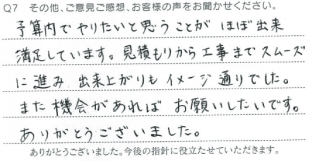 Q7 その他、ご意見ご感想、お客様の声をお聞かせください。
予算内でやりたいと思うことが ほぼ出来
満足しています。見積もりから工事までスムーズ
に進み 出来上がりも イメージ通りでした。
また機会があれば お願いしたいです。
ありがとうございました。
ありがとうございました。今後の指針に役立たせていただきます。